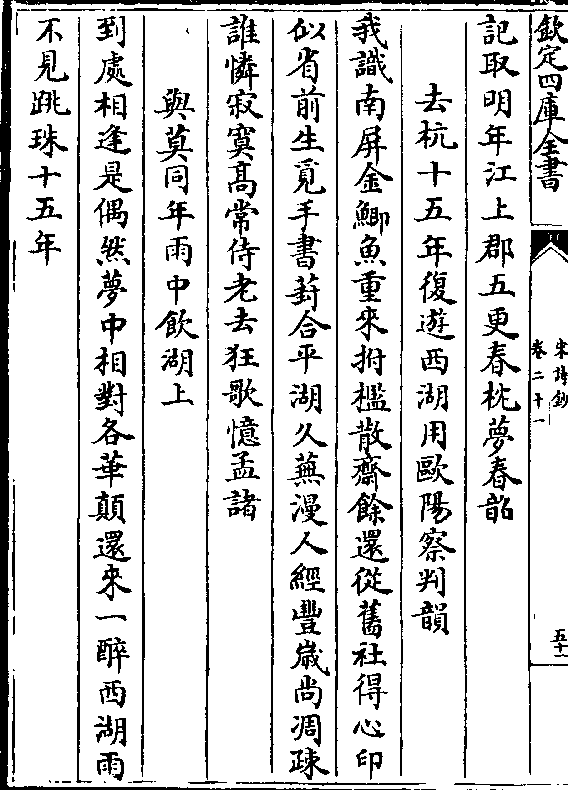 欽定四庫全書
宋詩鈔
卷二十一
五十一
記取明年江上郡五更春枕夢春韶
去杭十五年復遊西湖用歐陽察判韻
我識南屏金鯽魚重來拊檻散齋餘還從舊社得心印
似省前生覓手書葑合平湖久蕪漫人經豐嵗尚凋疎
誰憐寂寞髙常侍老去狂歌憶孟諸
與莫同年雨中飲湖上
到處相逢是偶然夢中相對各華顛還來一醉西湖雨
不見跳珠十五年